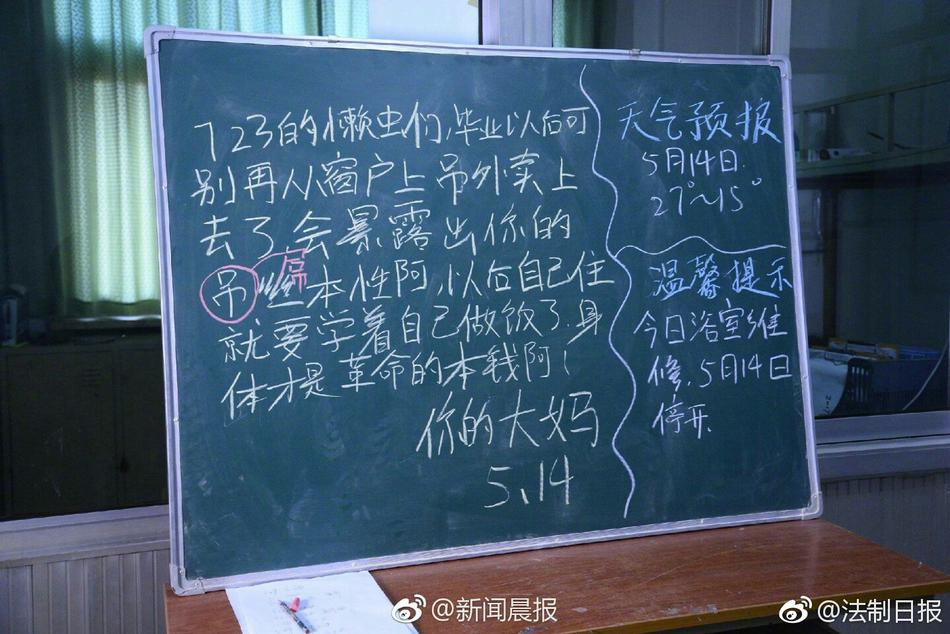 723的懒虫们,毕业以后可
别再从窗户上吊外卖上
去了,会暴露出你的
吊丝本性阿,以后自己住
就要学着自己做饭了.身
体才是革命的本钱阿!
你的大妈
5、14
天气预报
5月14日.
27°~15°
温馨提示
今日浴室维
修.5月14日
停开.
@新闻晨报
@法制日报